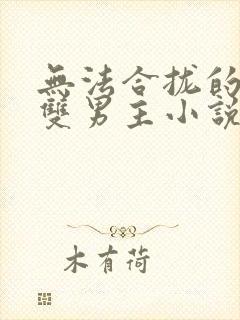 無法合拢的
雙男主小說
木有荷